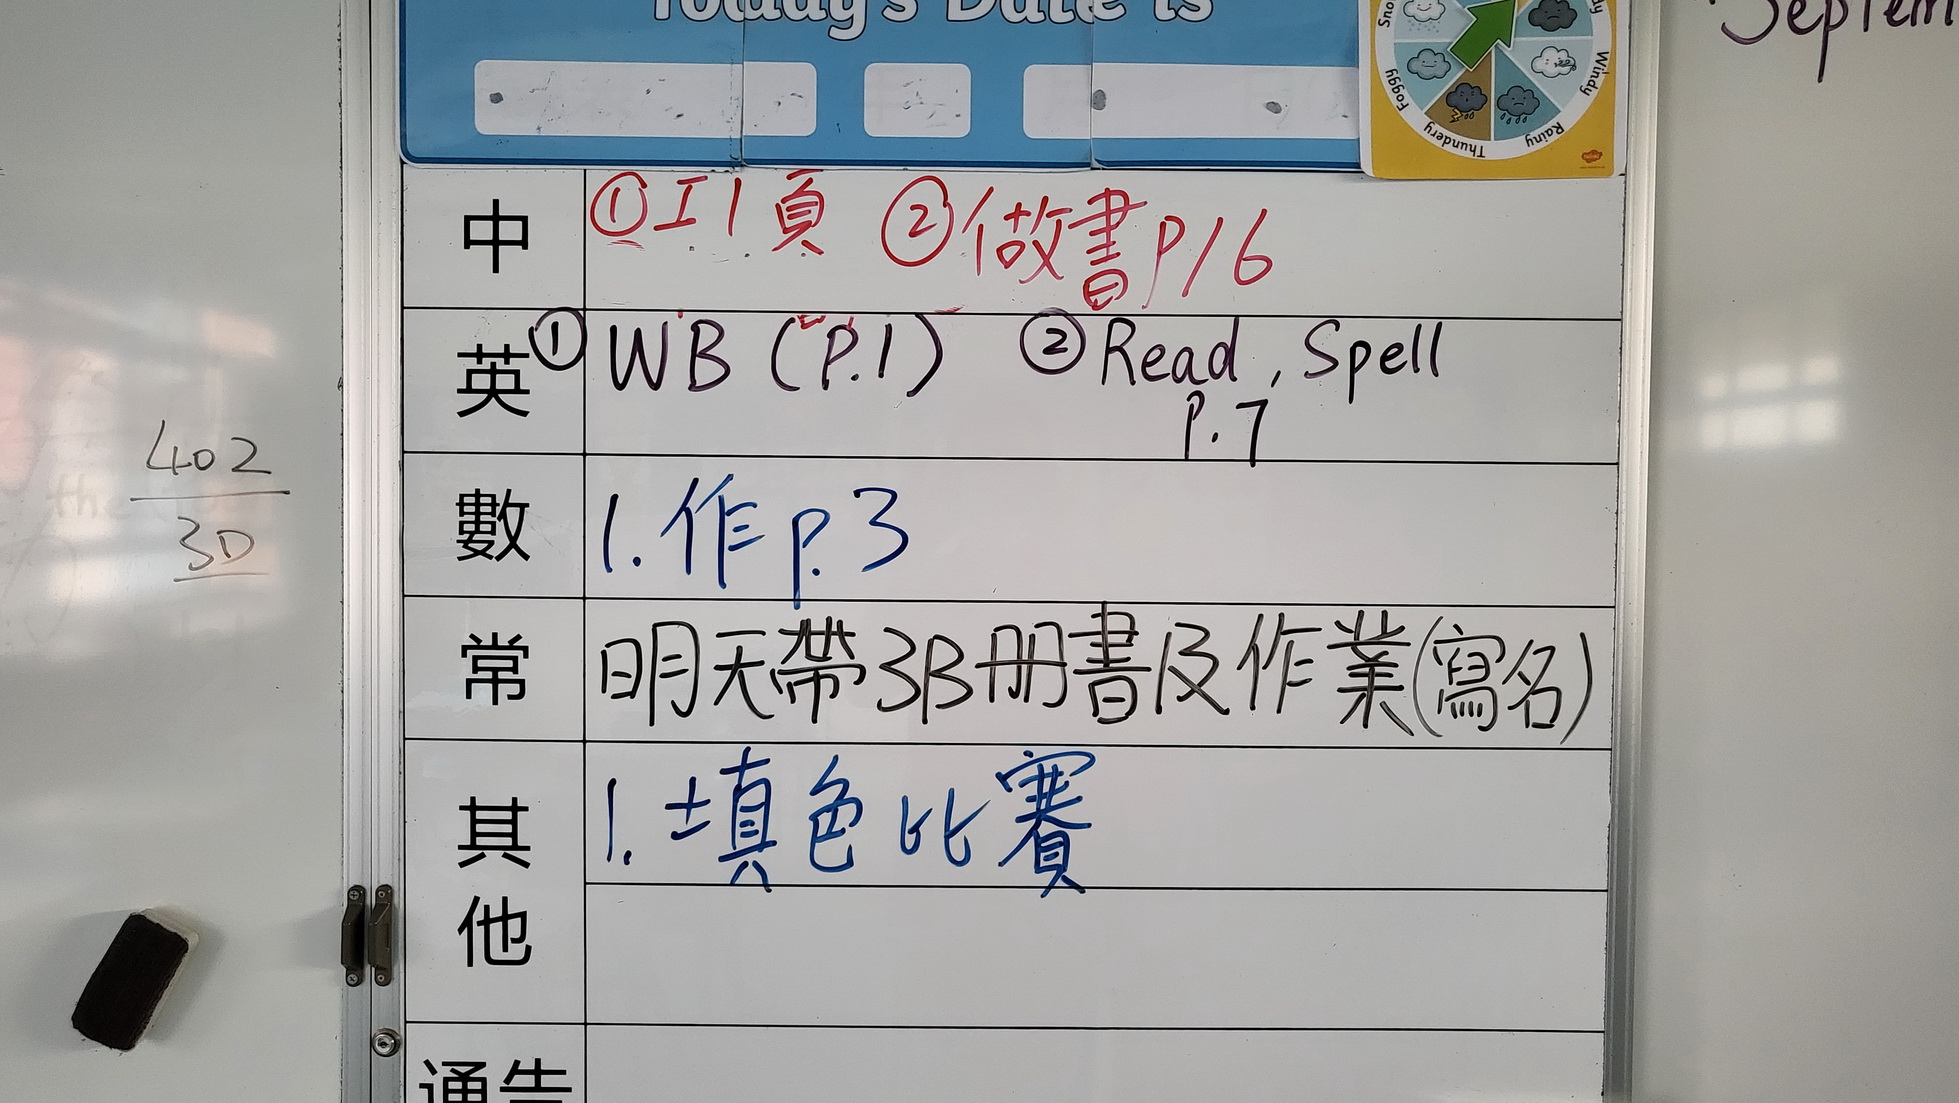 Today's Date is
Snowy
Foggy
Thundery
Rainy
Windy
Septem
中
①工1頁 ②做書P16
英
① WB (P.1) ② Read, Spell
P.7
402
3D
數
1.作p.3
常
明天帶3B冊書及作業(寫名)
其他
1.填色比賽
通告